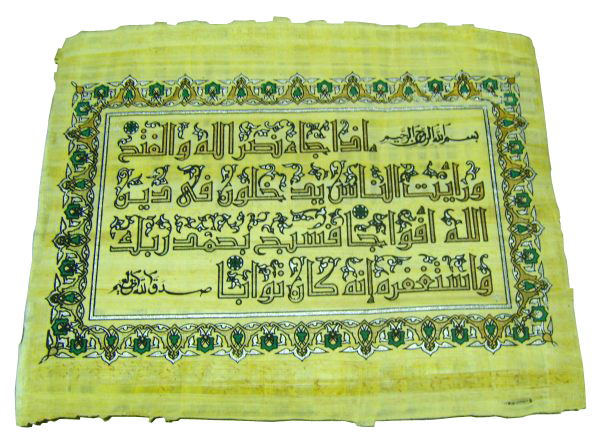 بسم الله الرحمن الرحيم إذا جاء نصر الله والفتح
ورأيت الناس يدخلون في دين
الله أفواجا فسبح بحمد ربك
واستغفره إنه كان توابا صدق الله العظيم